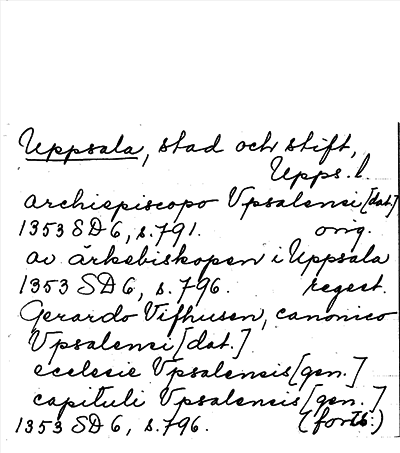 Uppsala, stad och stift,
Upps. l.
archiepiscopo Vpsalensi [dat.]
1353 SD 6, s. 791. orig.
av ärkebiskopen i Uppsala
1353 SD 6, s. 796. regest.
Gerardo Vifhusen, canonico
Vpsalensi [dat.]
ecclesie Vpsalensis [gen.]
capituli Vpsalensis [gen.]
1353 SD 6, s. 796. (forts.)